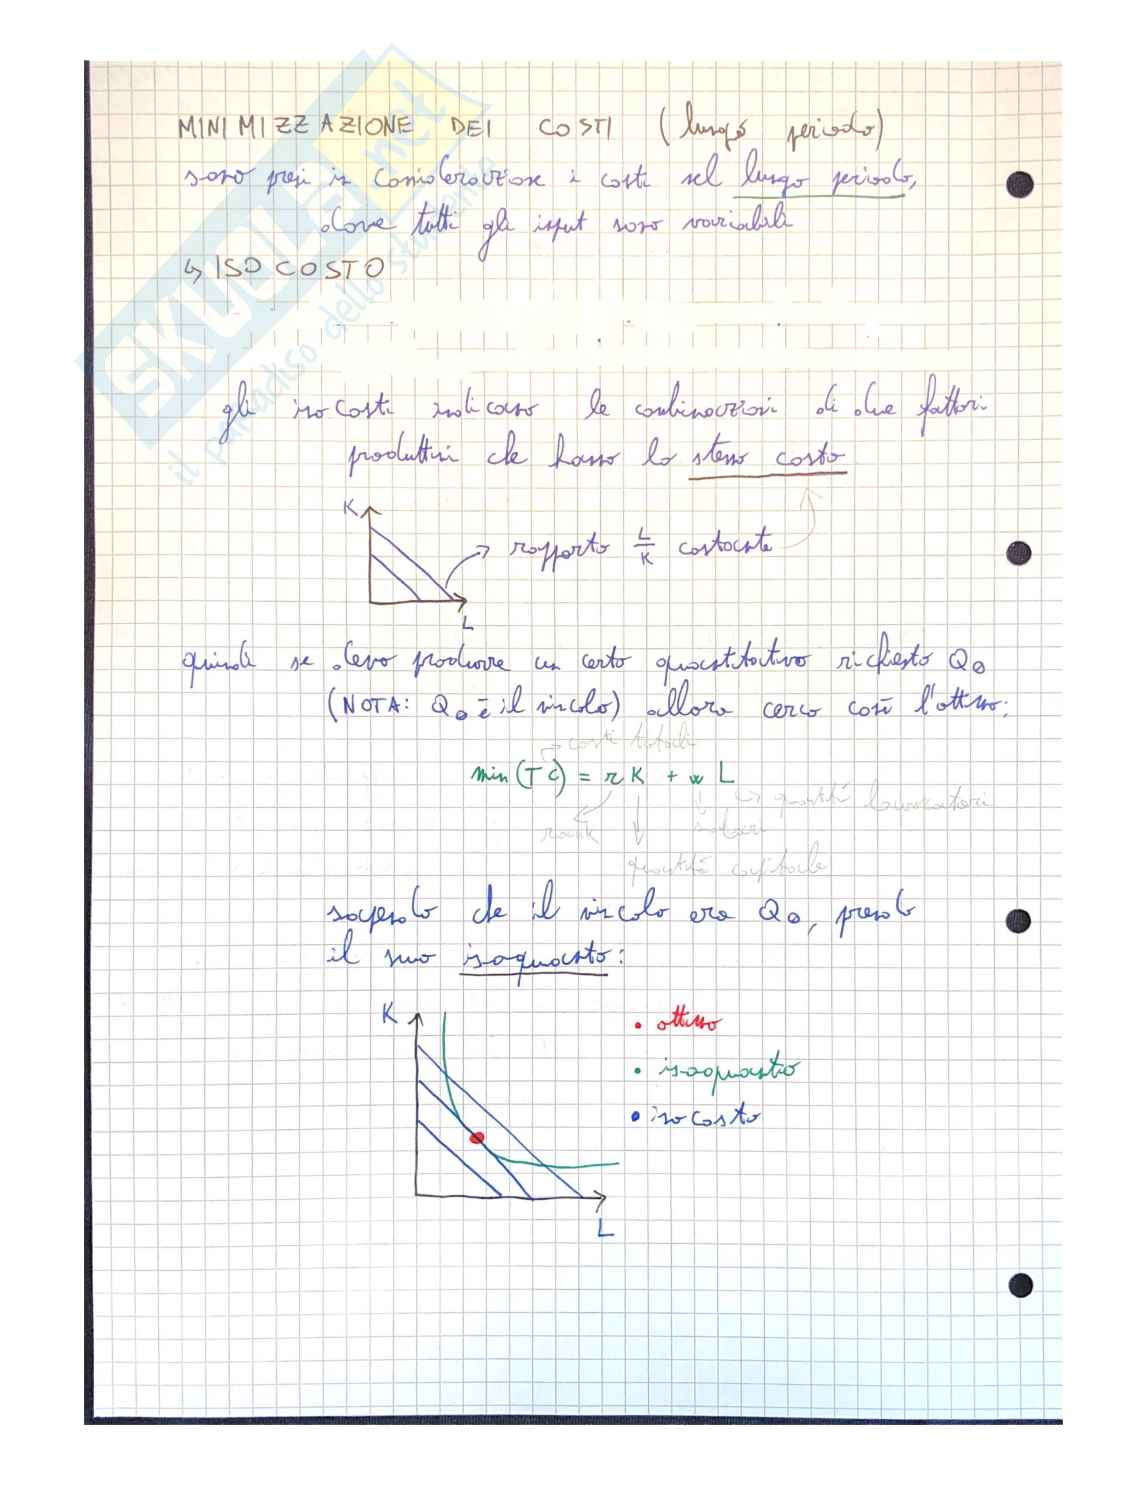 MINIMIZZAZIONE DEI COSTI (lungo periodo)
sono presi in considerazione i costi nel lungo periodo,
dove tutti gli input sono variabili
↳ ISOCOSTO
SKUOLA.net
il paradiso dello studente
gli isocosti indicano le combinazioni di due fattori
produttivi che hanno lo stesso costo
K
→ rapporto L/K costante
L
quindi se devo produrre un certo quantitativo richiesto Q0
(NOTA: Q0 è il vincolo) allora cerco così l'ottimo:
→ costi totali
min (TC) = rK + wL
→ quantità lavoratori
salari
quantità capitale
sapendo che il vincolo era Q0, prendo
il suo isoquanto:
K
• ottimo
• isoquanto
• isocosto
L